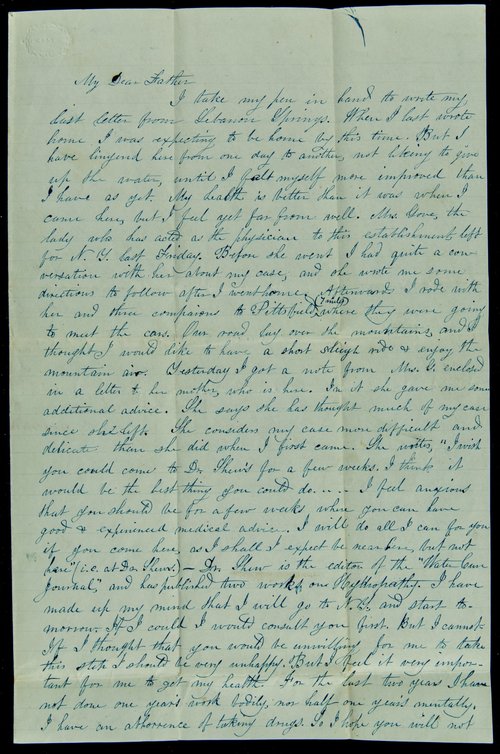 My Dear Father
I take my pen in hand to write my
last letter from Lebanon Springs. When I last wrote
home I was expecting to be home by this time. But I
have lingered here from one day to another, not liking to give
up the water, until I felt myself more improved than
I have as yet. My health is better than it was when I
came here, but I feel yet far from well. Mrs. Gove, the
lady who has acted as the physician to this establishment left
for N.Y. last Friday. Before she went I had quite a con-
versation with her about my case, and she wrote me some
directions to follow after I went home. Afterwards I rode with
her and three companions to Pittsfield, where they were going
to meet the cars. Our road lay over the mountains, and I
thought I would like to have a short sleigh ride & enjoy the
mountain air. Yesterday I got a note from Mrs. G. enclosed
in a letter to her mother, who is here. In it she gave me some
additional advice. She says she has thought much of my case
since she left. She considers my case more difficult and
delicate than she did when I first came. She writes, "I wish
you could come to Dr Shew's for a few weeks. I think it
would be the best thing you could do..... I feel anxious
that you should be for a few weeks where you can have
good & experienced medical advice. I will do all I can for you
if you come here, as I shall I expect be near here, but not
here" (i.e. at Dr. Shew's). — Dr. Shew is the editor of the "Water Cure
Journal", and has published two works on Hydropathy. I have
made up my mind that I will go to N.Y. and start to-
morrow. If I could I would consult you first. But I cannot.
If I thought that you would be unwilling for me to take
this step I should be very unhappy. But I feel it very impor-
tant for me to get my health. For the last two years I have
not done one year's work bodily, nor half one year's mentally.
I have an abhorrence of taking drugs. So I hope you will not